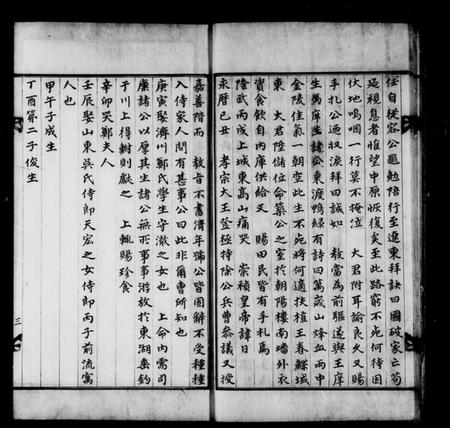 任自從容公亟勉陪行至遼東拜訣曰國破家亡苟
延視息者惟望中原恢復矣至此路窮不死何待因
伏地嗚咽一行莫不掩泣 大君附耳諭良久又賜
手札公迺收淚拜曰誠如 教當為前驅遂與王庠
生萬庠生諸公東渡鴨綠有詩曰萬歲山烽血雨中
金陵佳氣一朝空此生不死將何適扶植王春鰈域
東 大君陞儲位命築公之室於朝陽樓南墻外衣
資食飲自內庫供給又 賜田民皆有手札焉
隆武丙戌上城東高山痛哭 崇禎皇帝諱日
永曆己丑 孝宗大王登極特除公兵曹參議又授
嘉善階而 教旨不書清年號公皆固辭不受種種
入侍家人問有甚事公曰此非爾曹所知也
庚寅娶濟川鄭氏學生守澈之女也 上命內需司
廩諸公以厚其生諸公無所事事游放於東湖垂釣
于川上得鮒則獻之 上輒賜珍食
辛卯哭鄭夫人
壬辰娶山東吳氏侍郎天宏之女侍郎丙子前流寓
人也
甲午子成生
丁酉第二子俊生
三